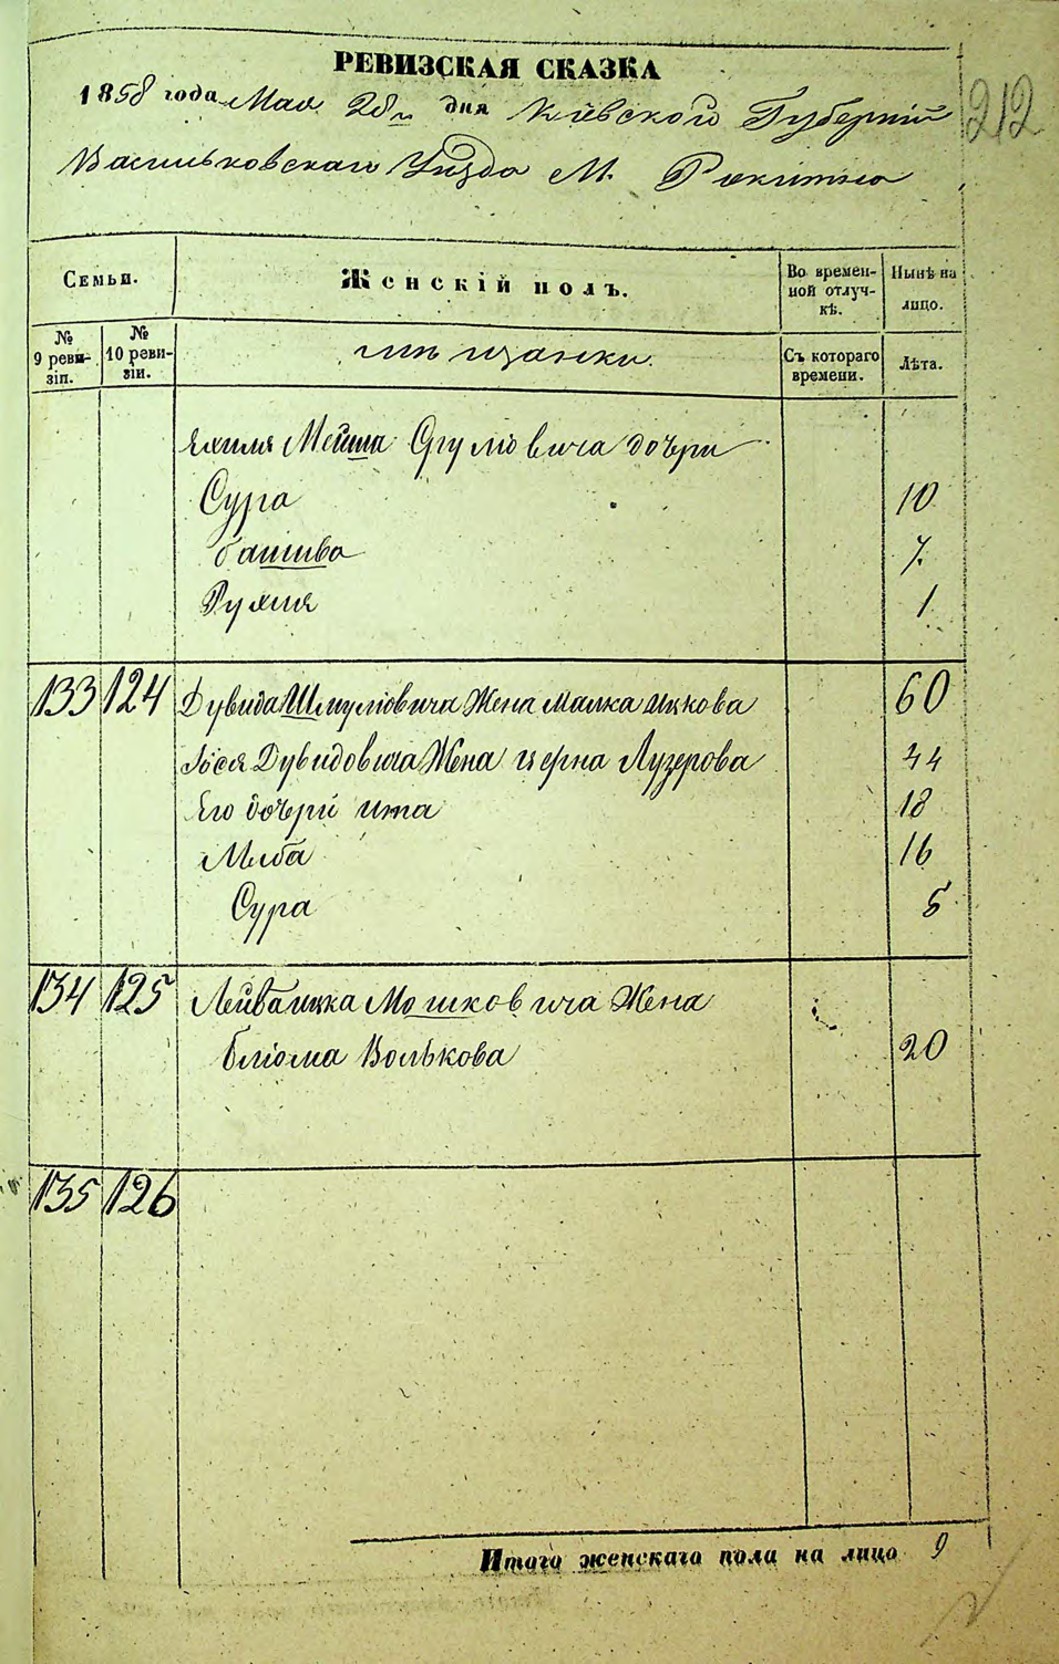 РЕВИЗСКАЯ СКАЗКА
212
1858 года Мая 28 дня Кіевской Губерніи
Васильковскаго Уѣзда М. Рокитно
Семьи.
Женскій полъ.
Во времен-
ной отлуч-
кѣ.
Нынѣ на
лицо.
№
9 реви-
зіи.
№
10 реви-
зіи.
мѣщанки.
Съ котораго
времени.
Лѣта.
Мейша дочери
Сура 10
башива 7.
Рухля 1
133 124 Дувида Шмуліовича Жена малка ицкова 60
Іося Дувидовича Жена церна Лузерова 44
Его дочери ита 18
Либа 16
Сура 5
134 125 Лейбаицка Мошковича Жена
бліома Волькова 20
135 126
Итого женскаго пола на лицо 9